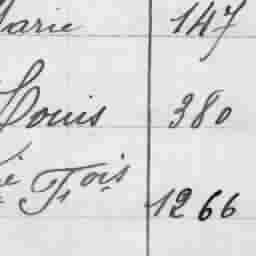 Marie 147
Louis 380
Fois 1266